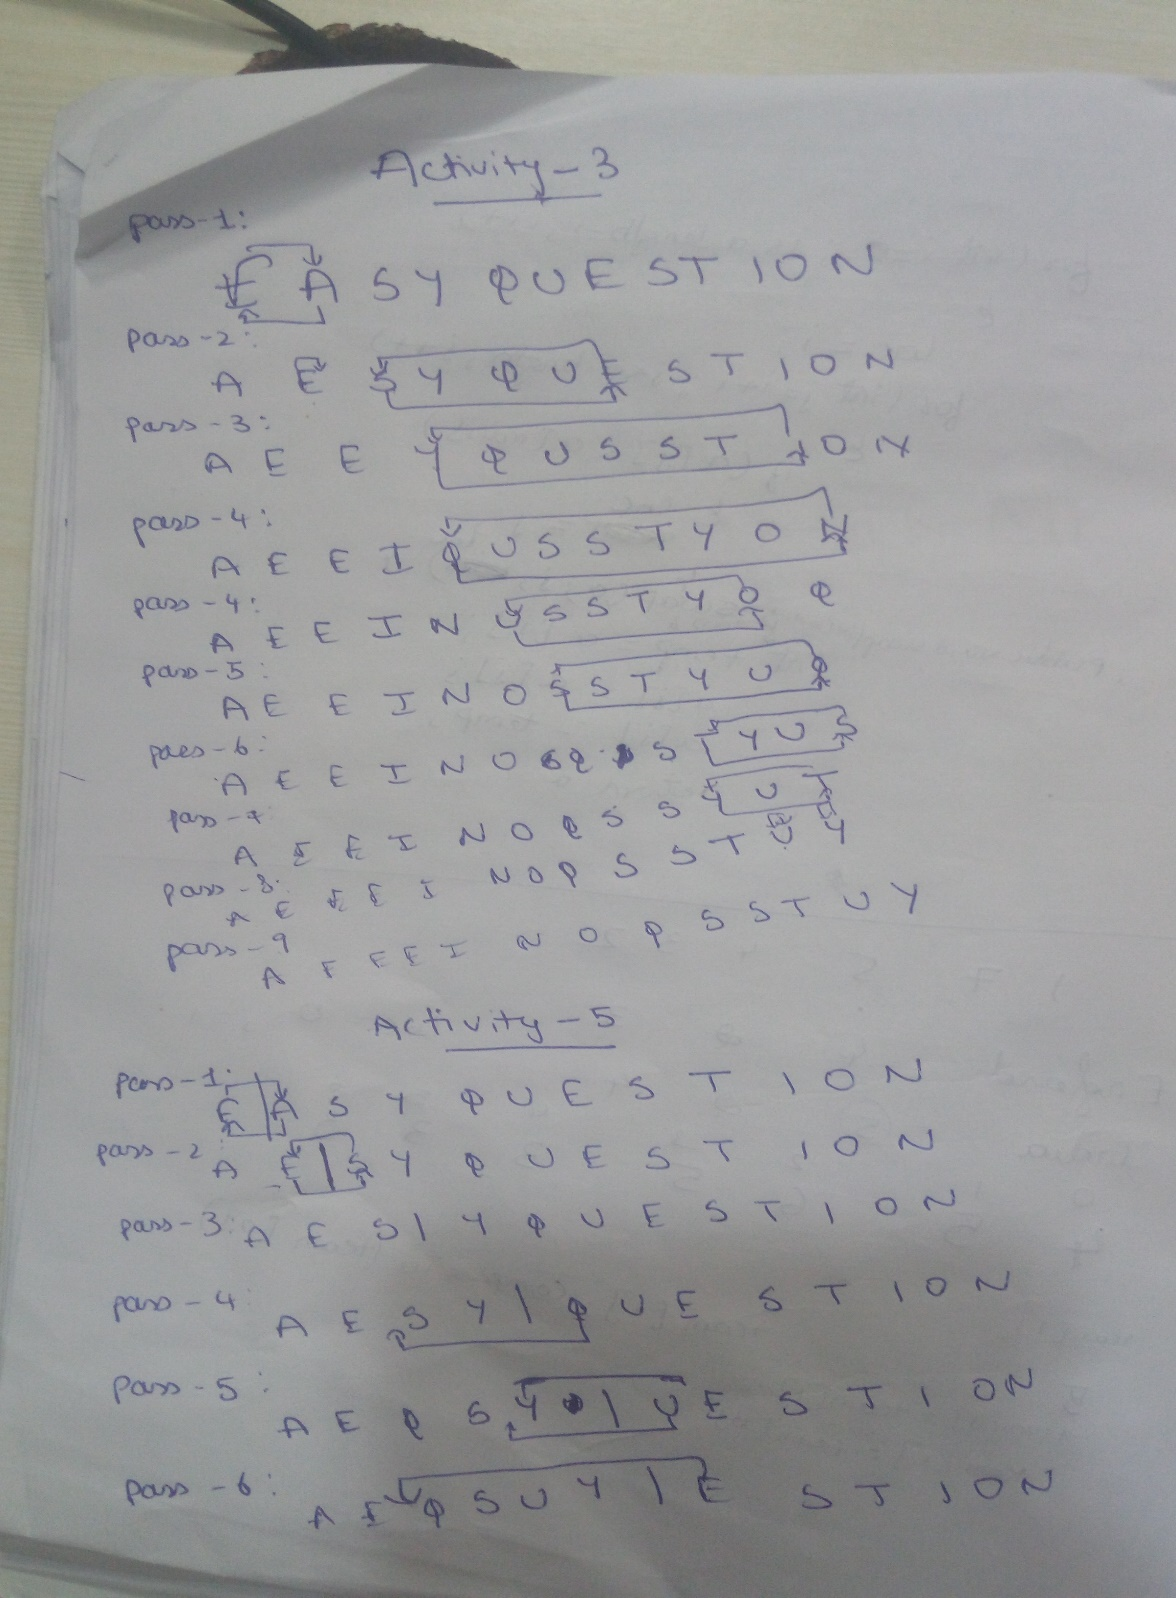 Activity-3
pass-1:
E A S Y Q U E S T I O N
pass-2:
A E S Y Q U E S T I O N
pass-3:
A E E Y Q U S S T I O N
pass-4:
A E E I Q U S S T Y O N
pass-4:
A E E I N U S S T Y O Q
pass-5:
A E E I N O S S T Y U Q
pass-6:
A E E I N O Q S T Y U S
pass-7
A E E I N O Q S S Y U T
pass-8:
A E E E I N O Q S S T U Y
pass-9
A E E E I N O Q S S T U Y
Activity-5
pass-1:
E | A S Y Q U E S T I O N
pass-2
A E | S Y Q U E S T I O N
pass-3:
A E S | Y Q U E S T I O N
pass-4
A E S Y | Q U E S T I O N
pass-5:
A E Q S Y | U E S T I O N
pass-6:
A E Q S U Y | E S T I O N